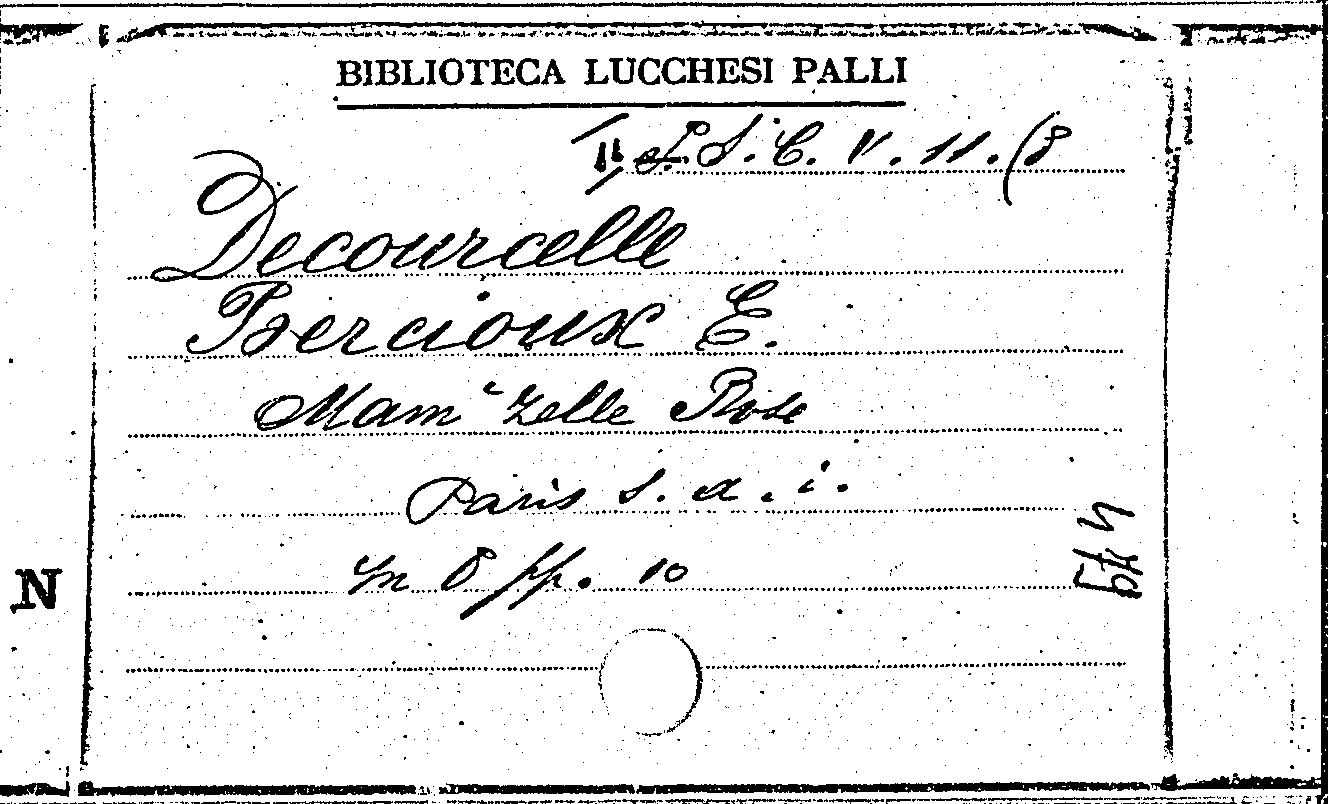 BIBLIOTECA LUCCHESI PALLI
S. C. V. 11. (8
Decourcelle
Bercioux E.
Mam'Zelle Rose
Paris s. a. i.
in 8 pp. 10
N